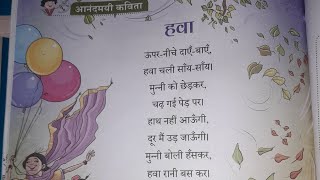 आनंदमयी कविता
हवा
ऊपर-नीचे दाएँ-बाएँ,
हवा चली साँय-साँय।
मुन्नी को छेड़कर,
चढ़ गई पेड़ पर।
हाथ नहीं आऊँगी,
दूर मैं उड़ जाऊँगी।
मुन्नी बोली हँसकर,
हवा रानी बस कर।